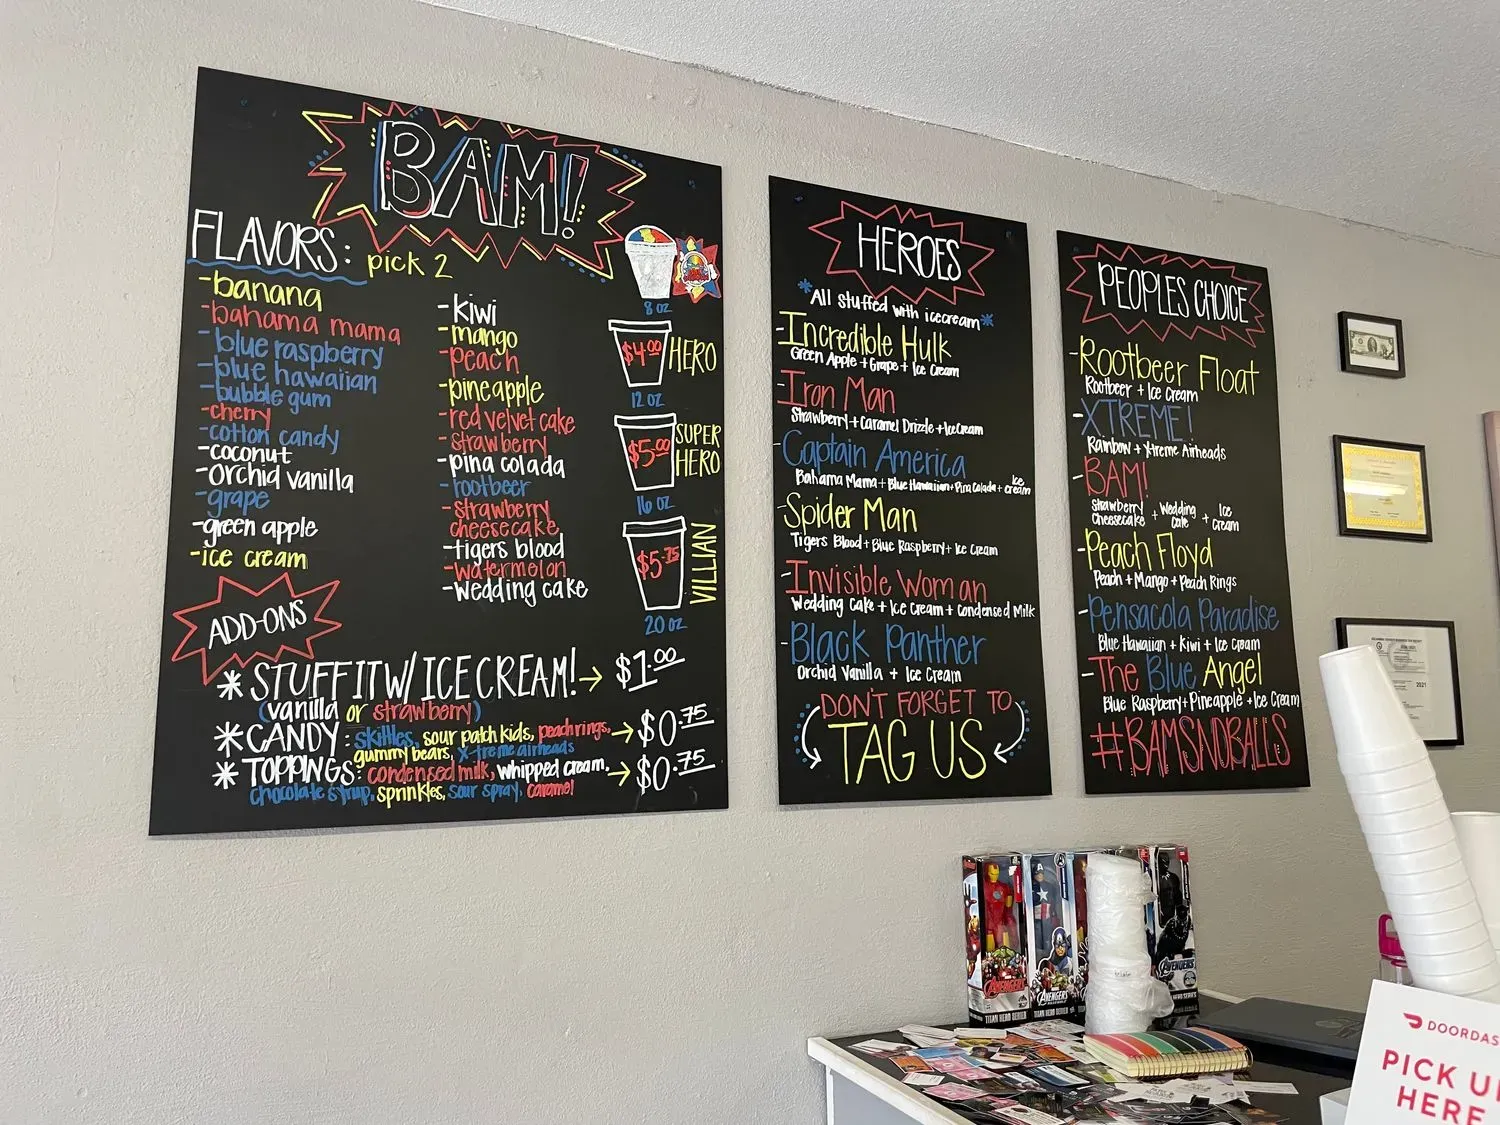 BAM!
FLAVORS: pick 2
-banana
-bahama mama
-blue raspberry
-blue hawaiian
-bubble gum
-cherry
-cotton candy
-coconut
-orchid vanilla
-grape
-green apple
-ice cream
-kiwi
-mango
-peach
-pineapple
-red velvet cake
-strawberry
-pina colada
-rootbeer
-strawberry
cheesecake
-tigers blood
-watermelon
-wedding cake
8 oz
$4.00 HERO
12 oz
$5.00 SUPER
HERO
16 oz
$5.75 VILLIAN
20 oz
ADD-ONS
*STUFF IT W/ ICE CREAM!→ $1.00
(vanilla or strawberry)
*CANDY: skittles, sour patch kids, peach rings,→ $0.75
gummy bears, x-treme airheads
*TOPPINGS: condensed milk, whipped cream,→ $0.75
chocolate syrup, sprinkles, sour spray, caramel
HEROES
*All stuffed with icecream*
-Incredible Hulk
Green Apple + Grape + Ice Cream
-Iron Man
Strawberry + Caramel Drizzle + Ice Cream
-Captain America
Bahama Mama + Blue Hawaiian + Pina Colada + Ice cream
-Spider Man
Tigers Blood + Blue Raspberry + Ice Cream
-Invisible Woman
Wedding Cake + Ice Cream + Condensed Milk
-Black Panther
Orchid Vanilla + Ice Cream
DON'T FORGET TO
TAG US
PEOPLES CHOICE
-Rootbeer Float
Rootbeer + Ice Cream
-XTREME!
Rainbow + Xtreme Airheads
-BAM!
Strawberry Cheesecake + Wedding Cake + Ice Cream
-Peach Floyd
Peach + Mango + Peach Rings
-Pensacola Paradise
Blue Hawaiian + Kiwi + Ice Cream
-The Blue Angel
Blue Raspberry + Pineapple + Ice Cream
#BAMSNOBALLS
2021
AVENGERS
TITAN HERO SERIES
AVENGERS
TITAN HERO SERIES
AVENGERS
DOORDAS
PICK U
HERE